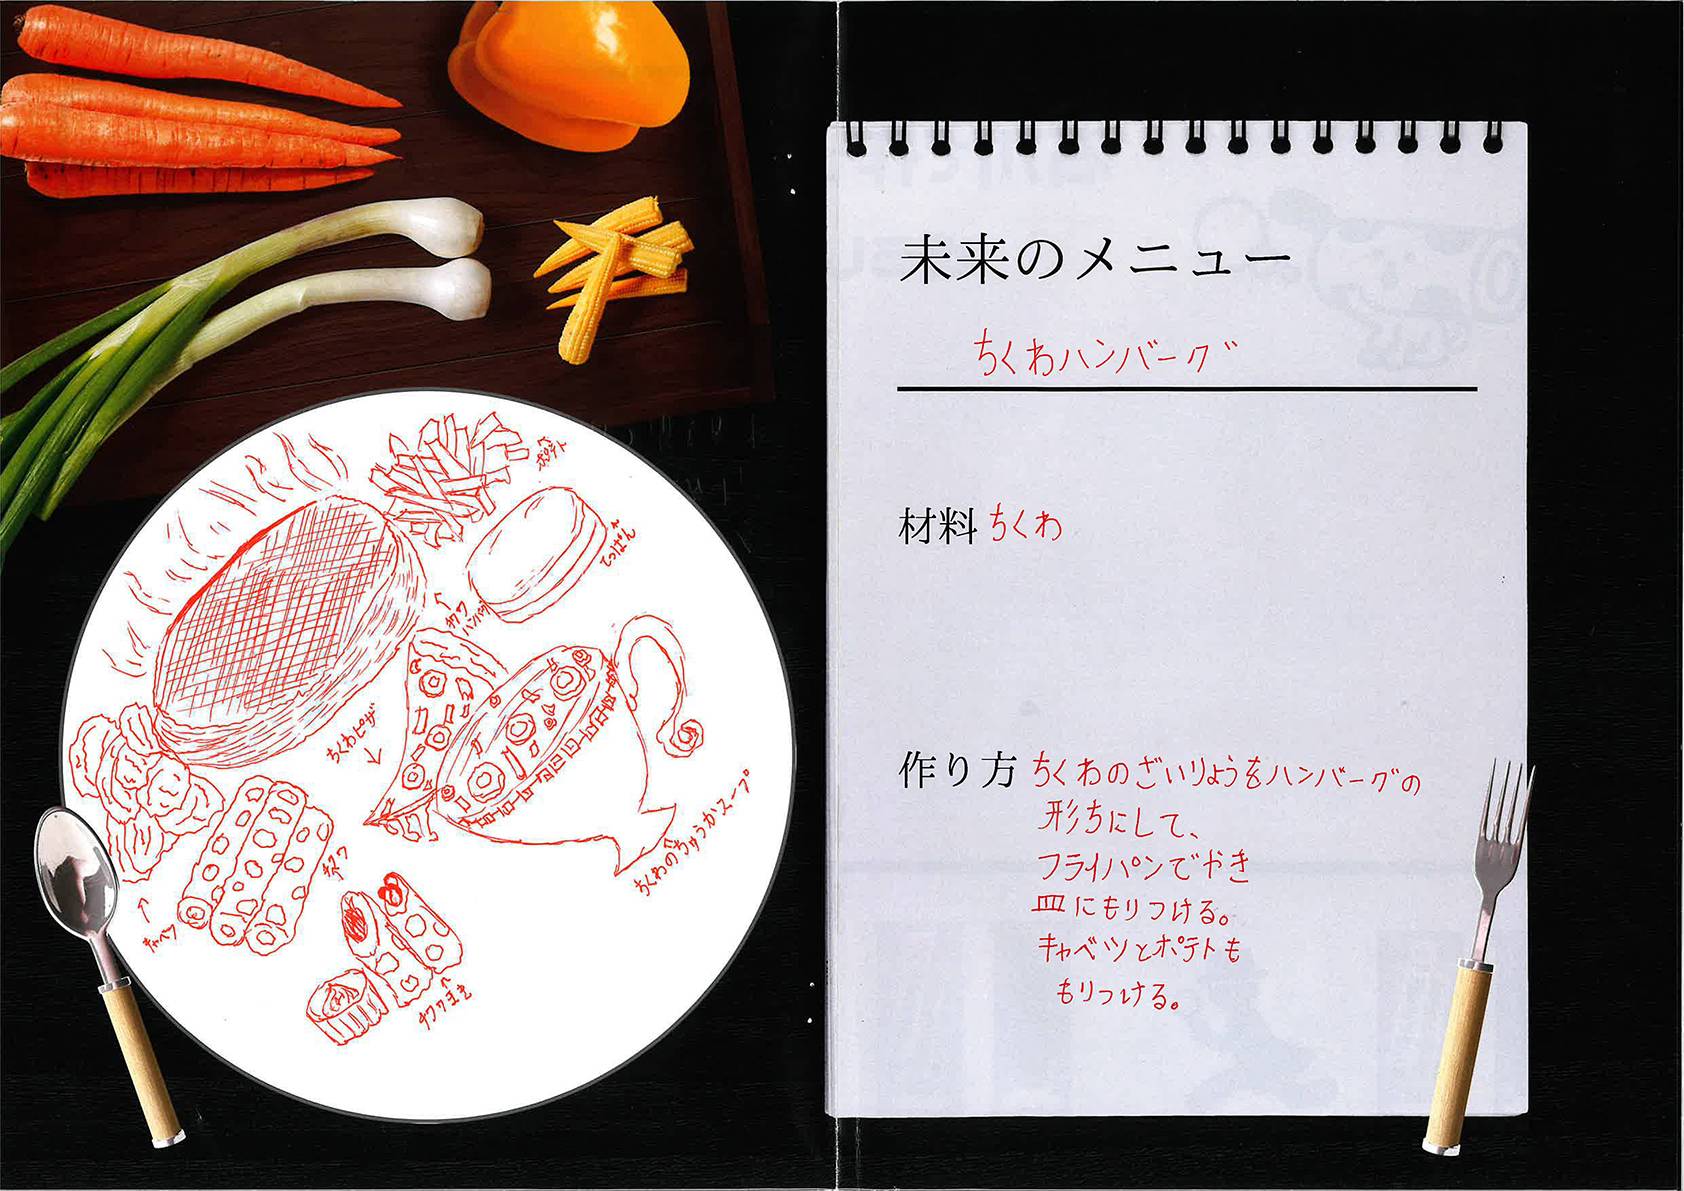 未来のメニュー
ちくわハンバーグ
材料 ちくわ
作り方 ちくわのざいりょうをハンバーグの
形ちにして、
フライパンでやき
皿にもりつける。
キャベツとポテトも
もりつける。
ポテト
てっぱん
チクワ
ハンバーグ
ちくわピザ
ちくわのちゅうかスープ
チクワ
キャベツ